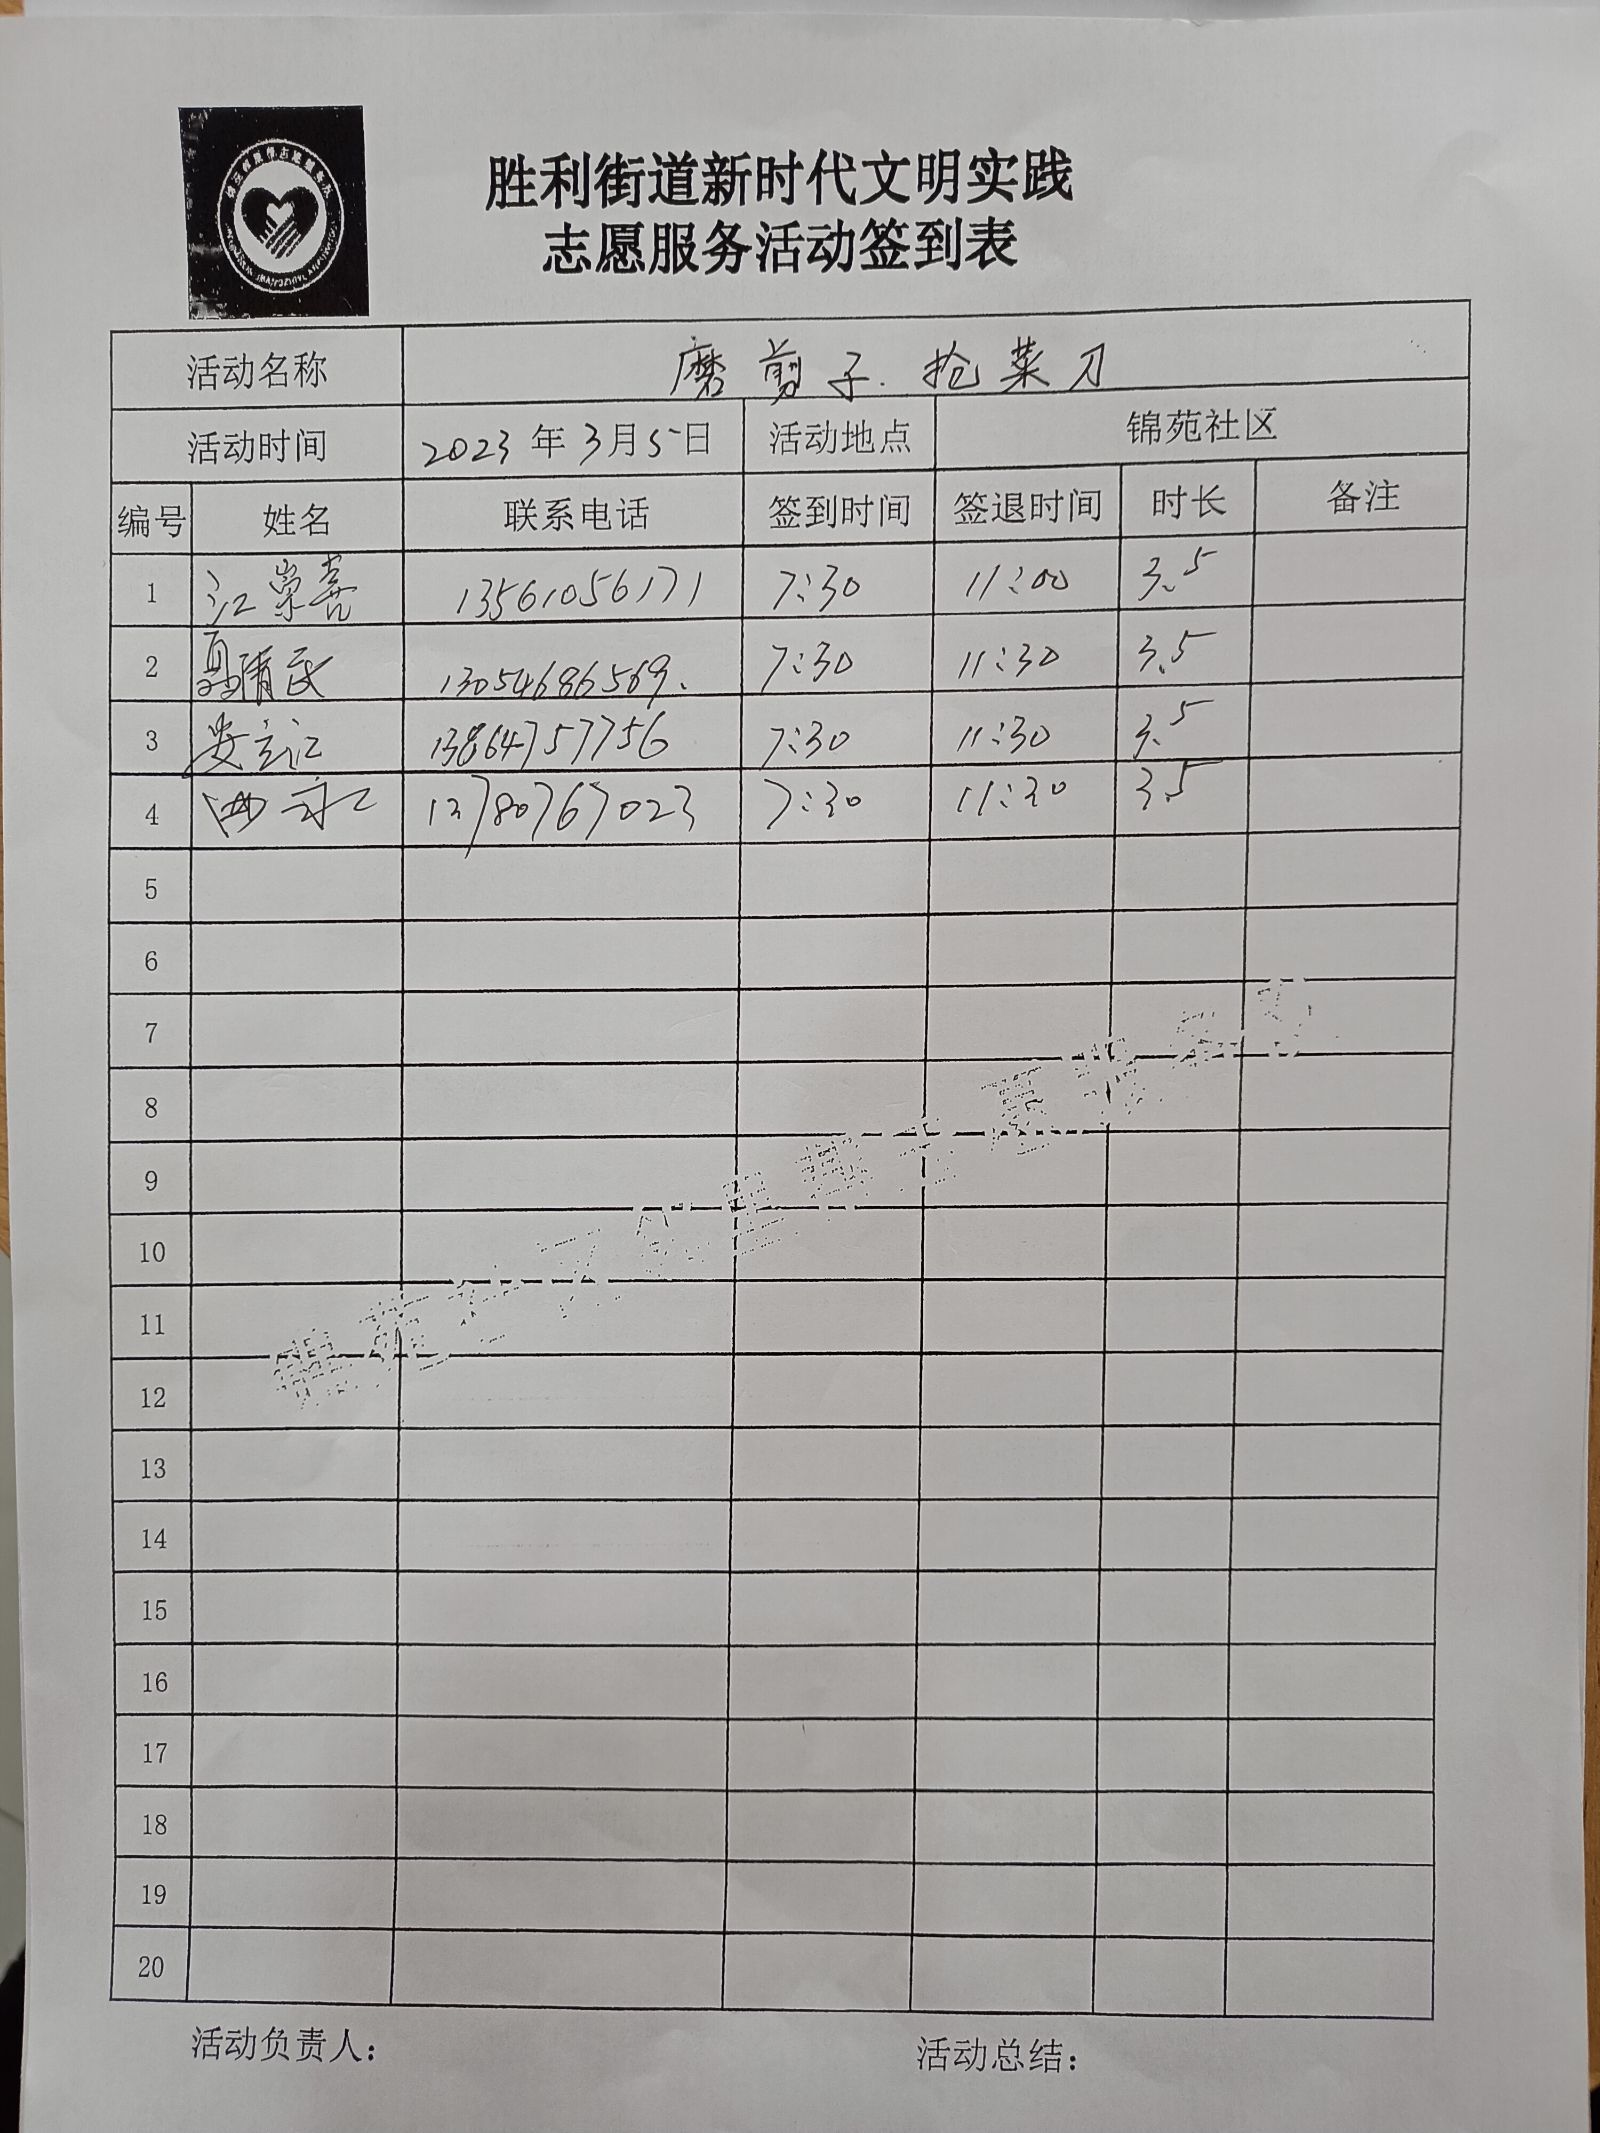 胜利街道新时代文明实践
志愿服务活动签到表
活动名称 磨剪子.抢菜刀
活动时间 2023年3月5日 活动地点 锦苑社区
编号 姓名 联系电话 签到时间 签退时间 时长 备注
1 江崇喜 13561056171 7:30 11:00 3.5
2 13054686569. 7:30 11:30 3.5
3 娄立江 13864757756 7:30 11:30 3.5
4 13780767023 7:30 11:30 3.5
5
6
7
8
9
10
11
12
13
14
15
16
17
18
19
20
活动负责人: 活动总结: